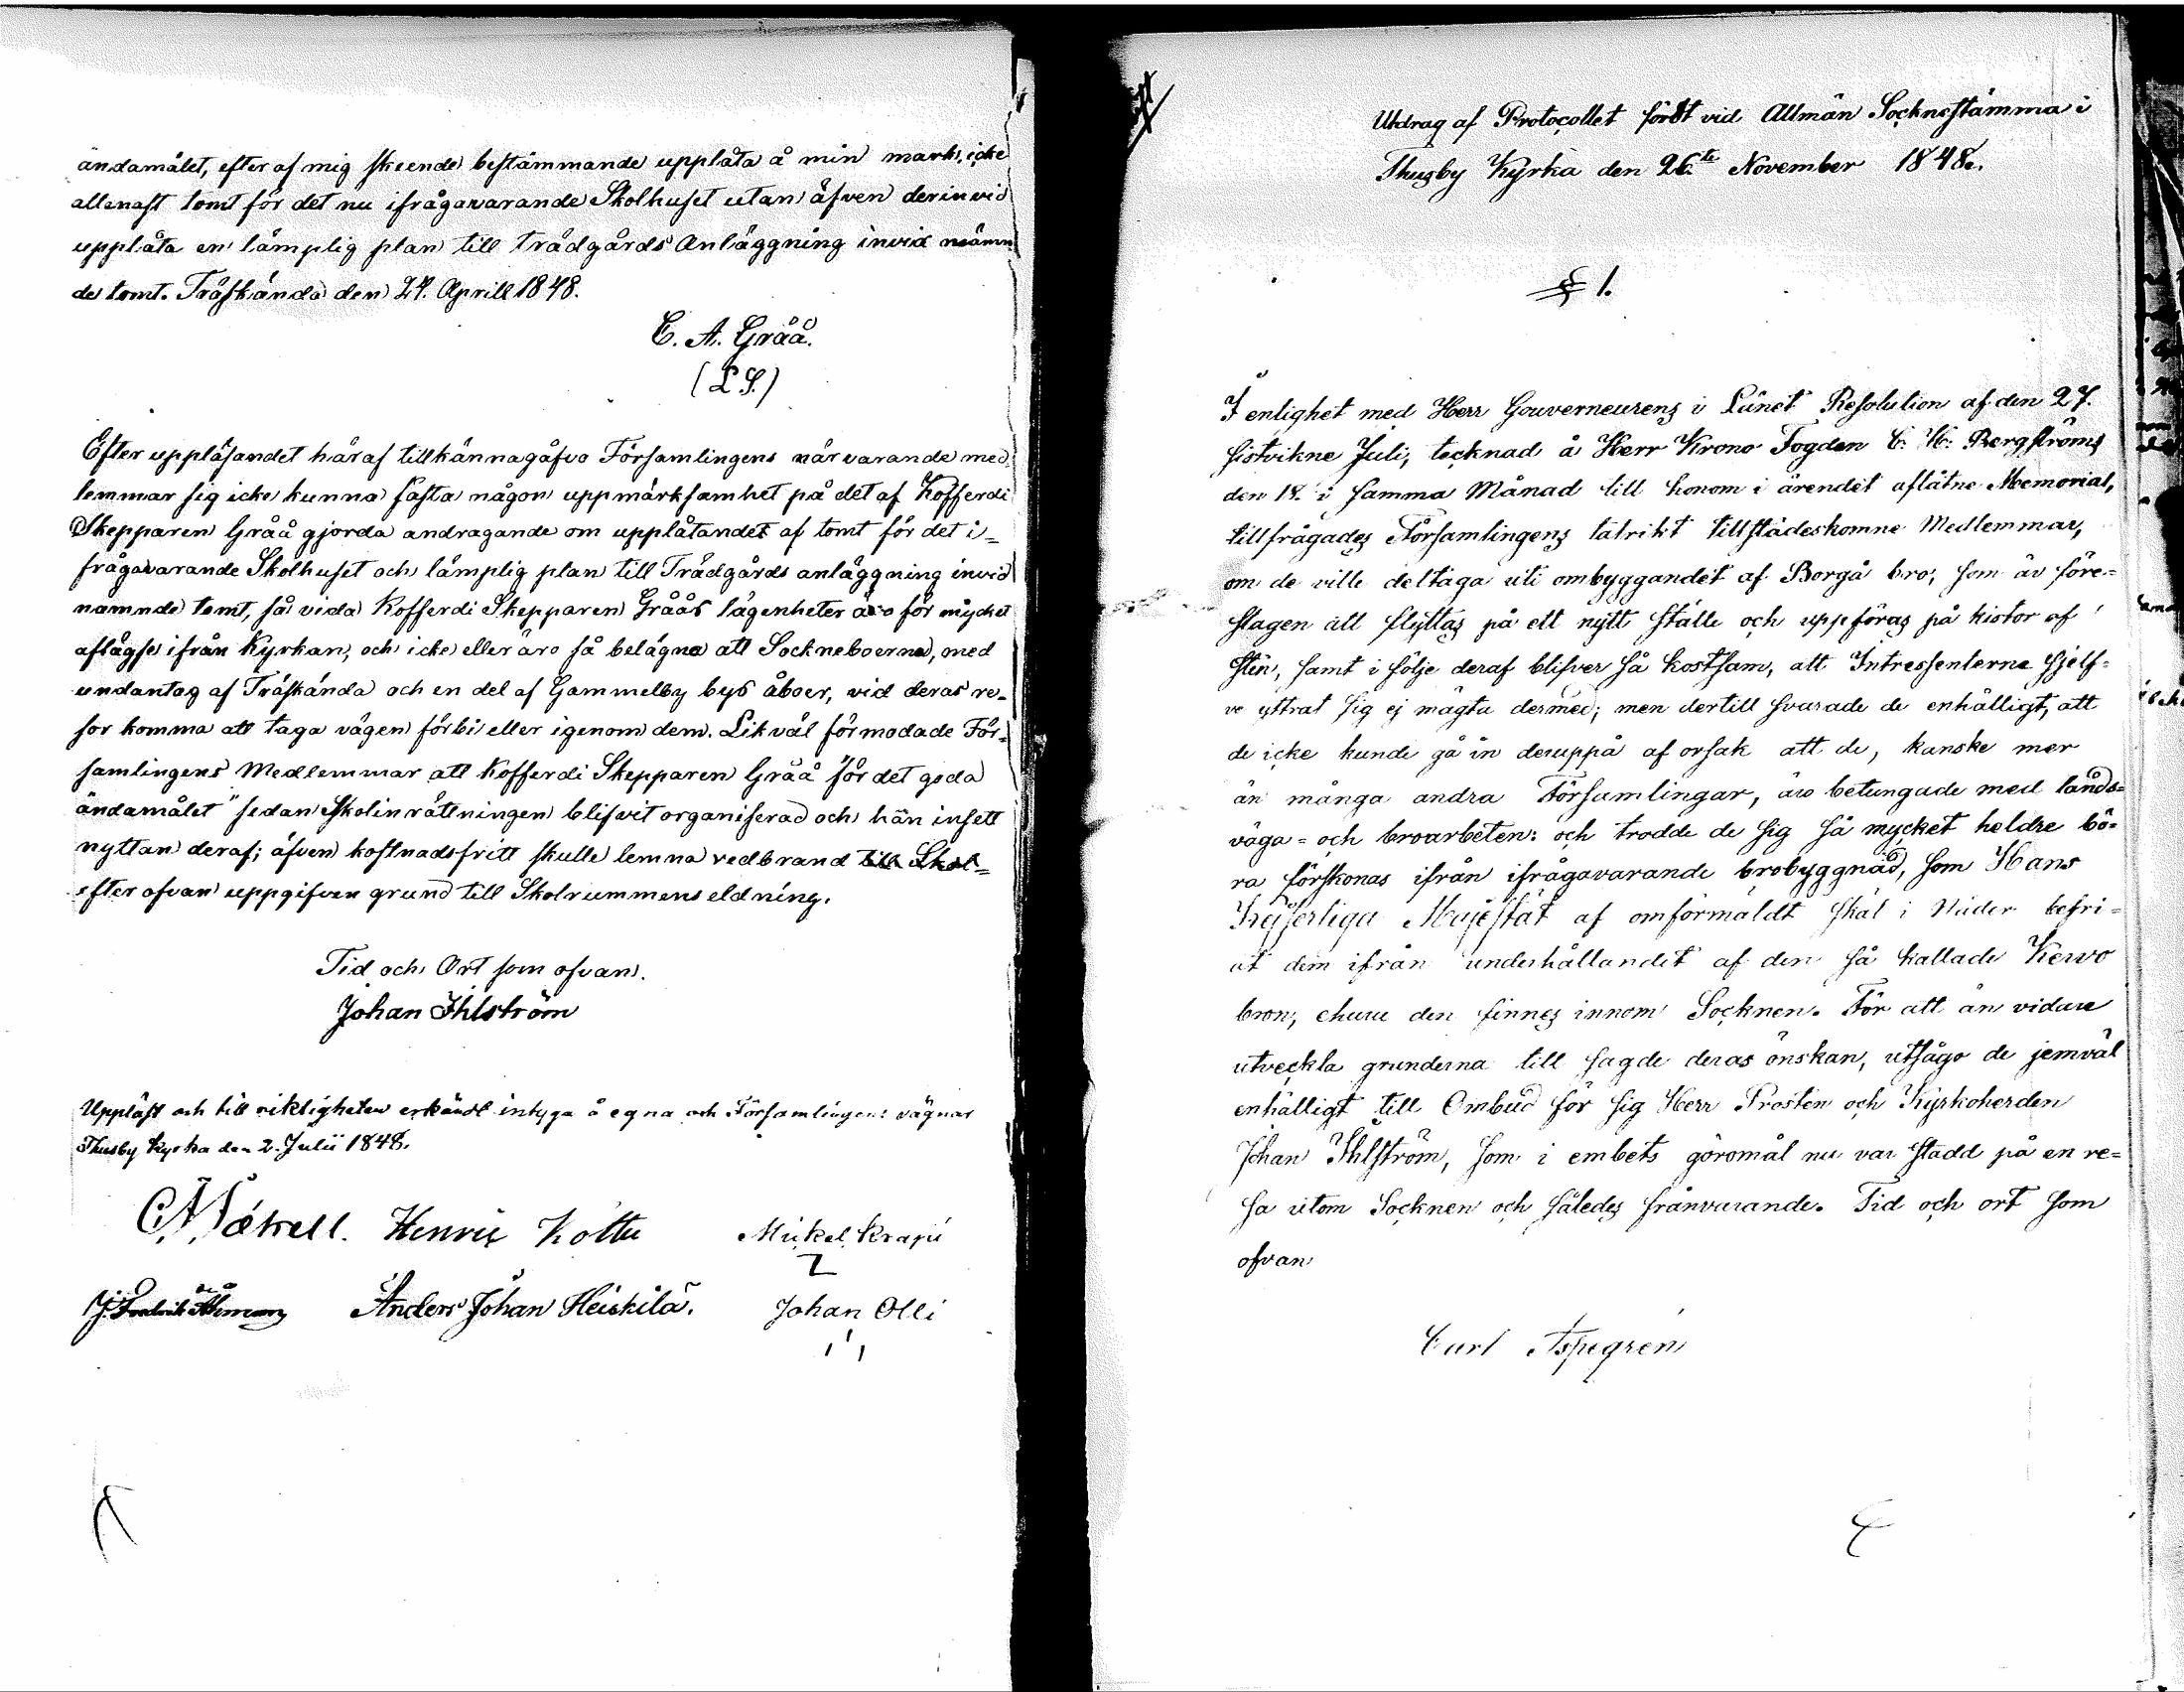 ändamålet, efter af mig skeende bestämmande upplåta å min mark, icke
allenast tomt för det nu ifrågavarande Skolhuset utan äfven derinvid
upplåta en lämplig plan till trädgårds Anläggning invid nämn
de tomt. Träskända den 24. Aprill 1848.
C. A. Gråå.
(L.S.)
Efter uppläsandet häraf tillkännagåfvo Församlingens närvarande med-
lemmar sig icke kunna fästa någon uppmärksamhet på det af Kofferdi
Skepparen Gråå gjorda andragande om upplåtandet af tomt för det i=
frågavarande Skolhuset och lämplig plan till Trädgårds anläggning invid
namnde tomt, så vida Kofferdi Skepparen Gråås lägenheter äro för mycket
aflägse ifrån Kyrkan, och icke eller äro så belägna att Sockneboerna, med
undantag af Träskända och en del af Gammelby bys åboer, vid deras re-
sor komma att taga vägen förbi eller igenom dem. Likväl förmodade För=
samlingens Medlemmar att Kofferdi Skepparen Gråå "för det goda
ändamålet" sedan Skolinrättningen blifvit organiserad och hän insett
nyttan deraf; äfven kostnadsfritt skulle lemna vedbrand till Skol=
efter ofvan uppgifven grund till Skolrummens eldning.
Tid och Ort som ofvan.
Johan Ihlström
Uppläst och till riktigheten erkändt intyga å egna och Församlingens vägnar
Thusby Kyrka den 2. Julii 1848.
Henric Kottu Mickel Krapi
J. Fredrik Anders Johan Heiskilä. Johan Olli
Utdrag af Protocollet fördt vid Allmän Socknestämma i
Thusby Kyrka den 26te November 1848.
§ 1.
I enlighet med Herr Gouverneurens i Länet Resolution af den 27.
sistvikne Juli, tecknad å Herr Krono Fogden C. H. Bergströms
den 18. i samma Månad till honom i ärendet aflåtne Memorial,
tillfrågades Församlingens talrikt tillstädeskomne Medlemmar,
om de ville deltaga uti ombyggandet af Borgå bro, som är före=
slagen att flyttas på ett nytt ställe och uppföras på kistor af
sten, samt i följe deraf blifver så kostsam, att Intressenterne sjelf=
ve yttrat sig ej mägta dermed; men dertill svarade de enhälligt, att
de icke kunde gå in deruppå af orsak att de, kanske mer
än många andra Församlingar, äro betungade med lands=
väga= och broarbeten: och trodde de sig så mycket heldre bö=
ra förskonas ifrån ifrågavarande brobyggnad, som Hans
Kejserliga Majestät af omförmäldt skäl i Nåder befri=
at dem ifrån underhållandet af den så kallade Kervo
bron, ehuru den finnes innom Socknen. För att än vidare
utveckla grunderna till sagde deras önskan, utsågo de jemväl
enhälligt till Ombud för sig Herr Prosten och Kyrkoherden
Johan Ihlström, som i embets göromål nu var stadd på en re=
sa utom Socknen och således frånvarande. Tid och ort som
ofvan
Carl Aspegren